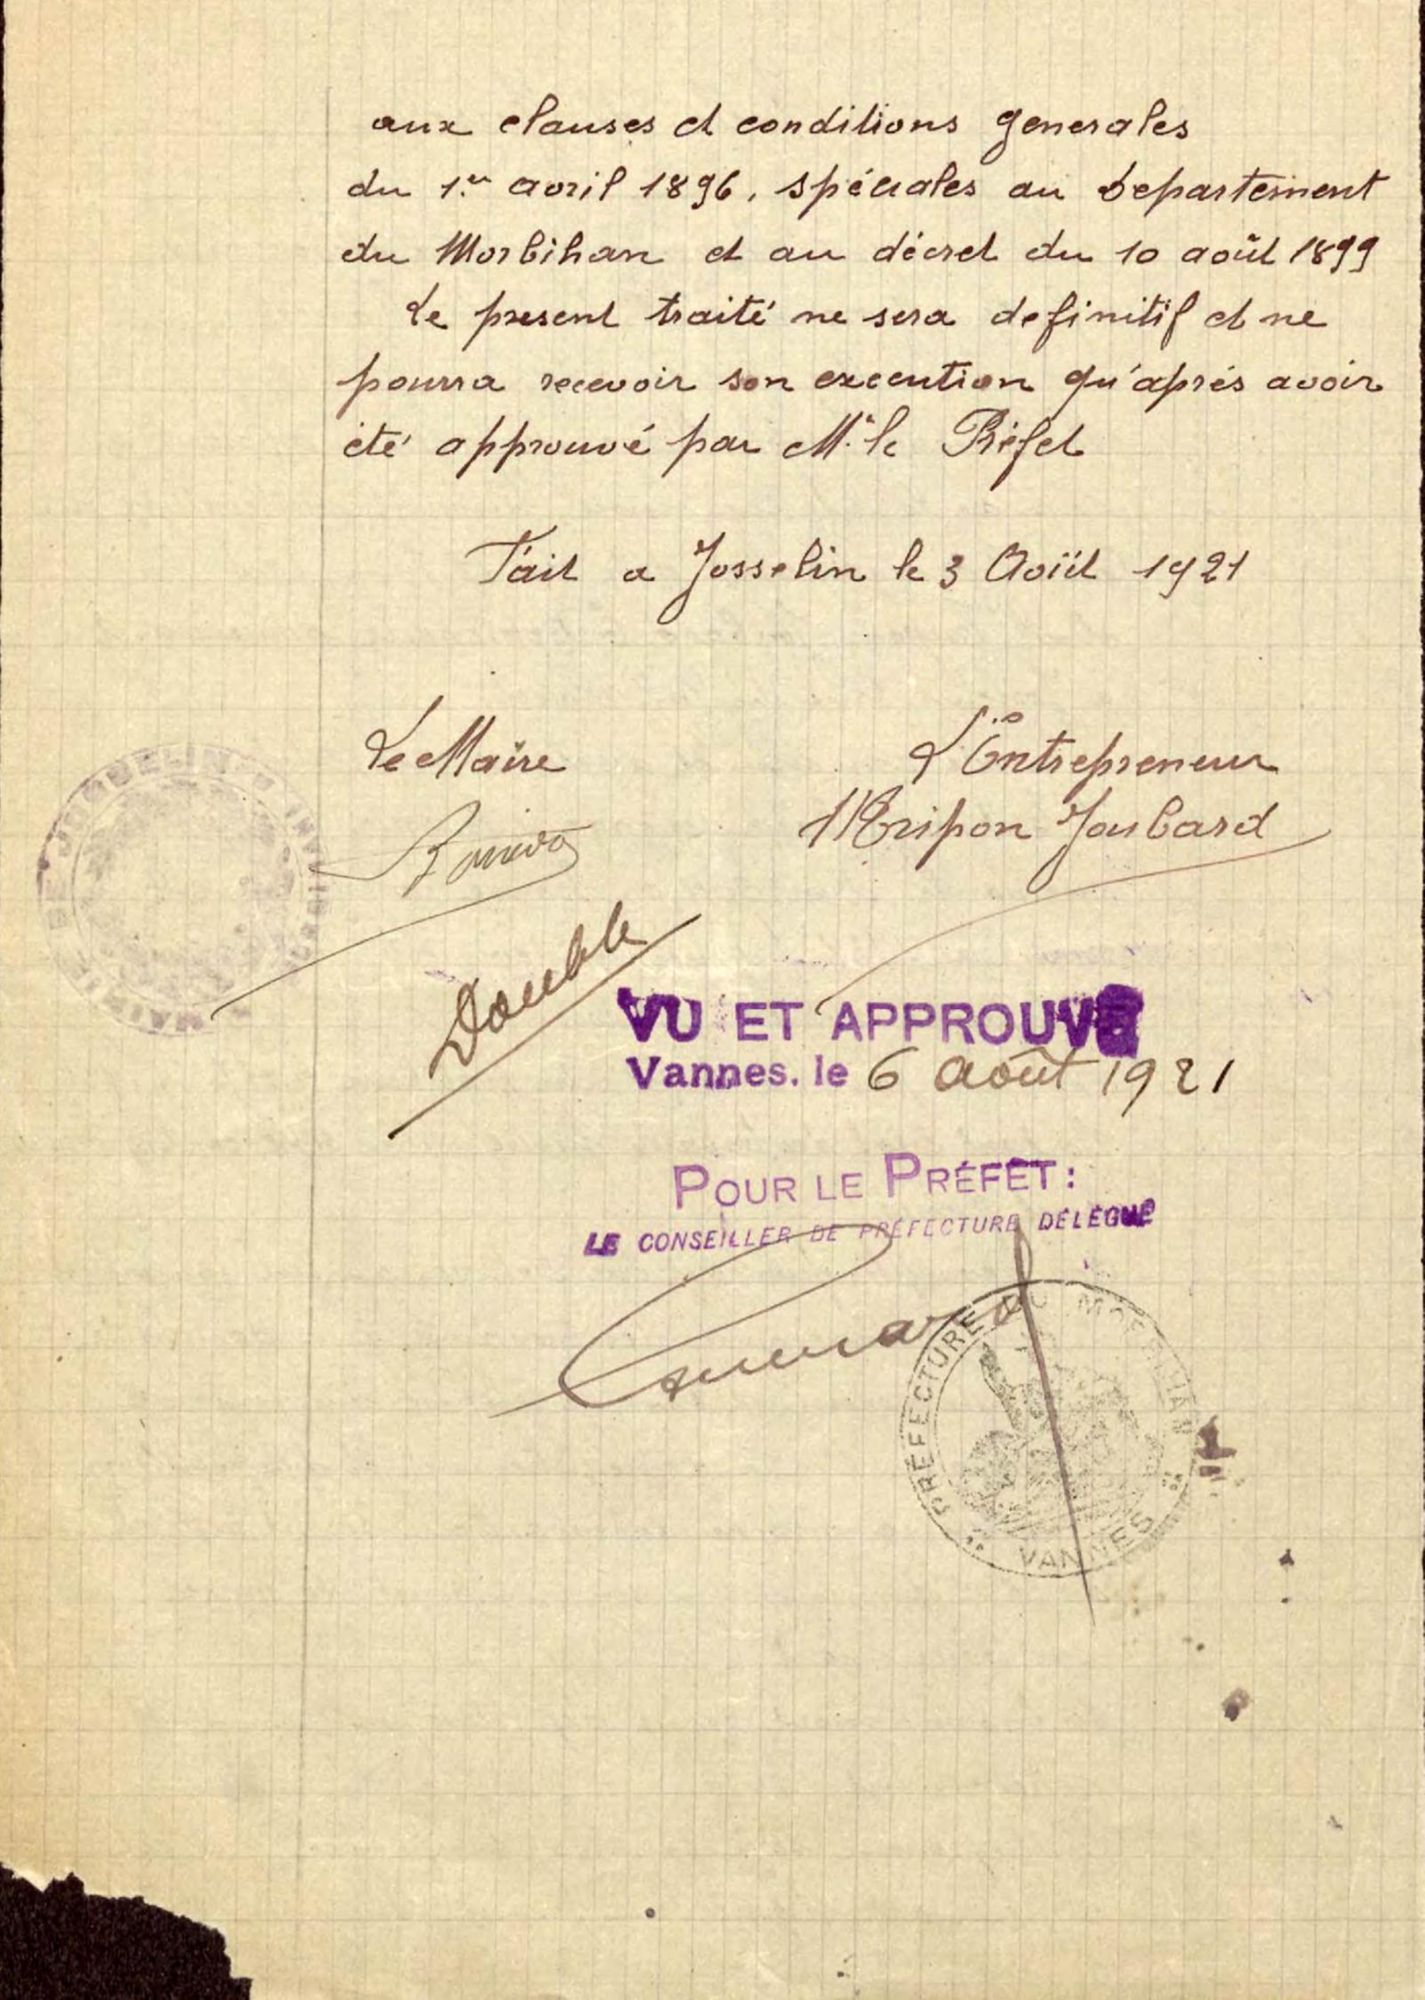 aux clauses et conditions generales
du 1er avril 1896, spéciales au Departement
du Morbihan et au décret du 10 août 1899
Le present traité ne sera definitif et ne
pourra recevoir son execution qu'aprés avoir
été approuvé par Mr le Préfet
Fait a Josselin le 3 Août 1921
Le Maire
L'Entrepreneur
Tripon Joubard
MAIRIE DE JOSSELIN
Double
VU ET APPROUVÉ
Vannes, le 6 août 1921
POUR LE PRÉFET:
LE CONSEILLER DE PRÉFECTURE DÉLÉGUÉ
PRÉFECTURE DU MORBIHAN
VANNES